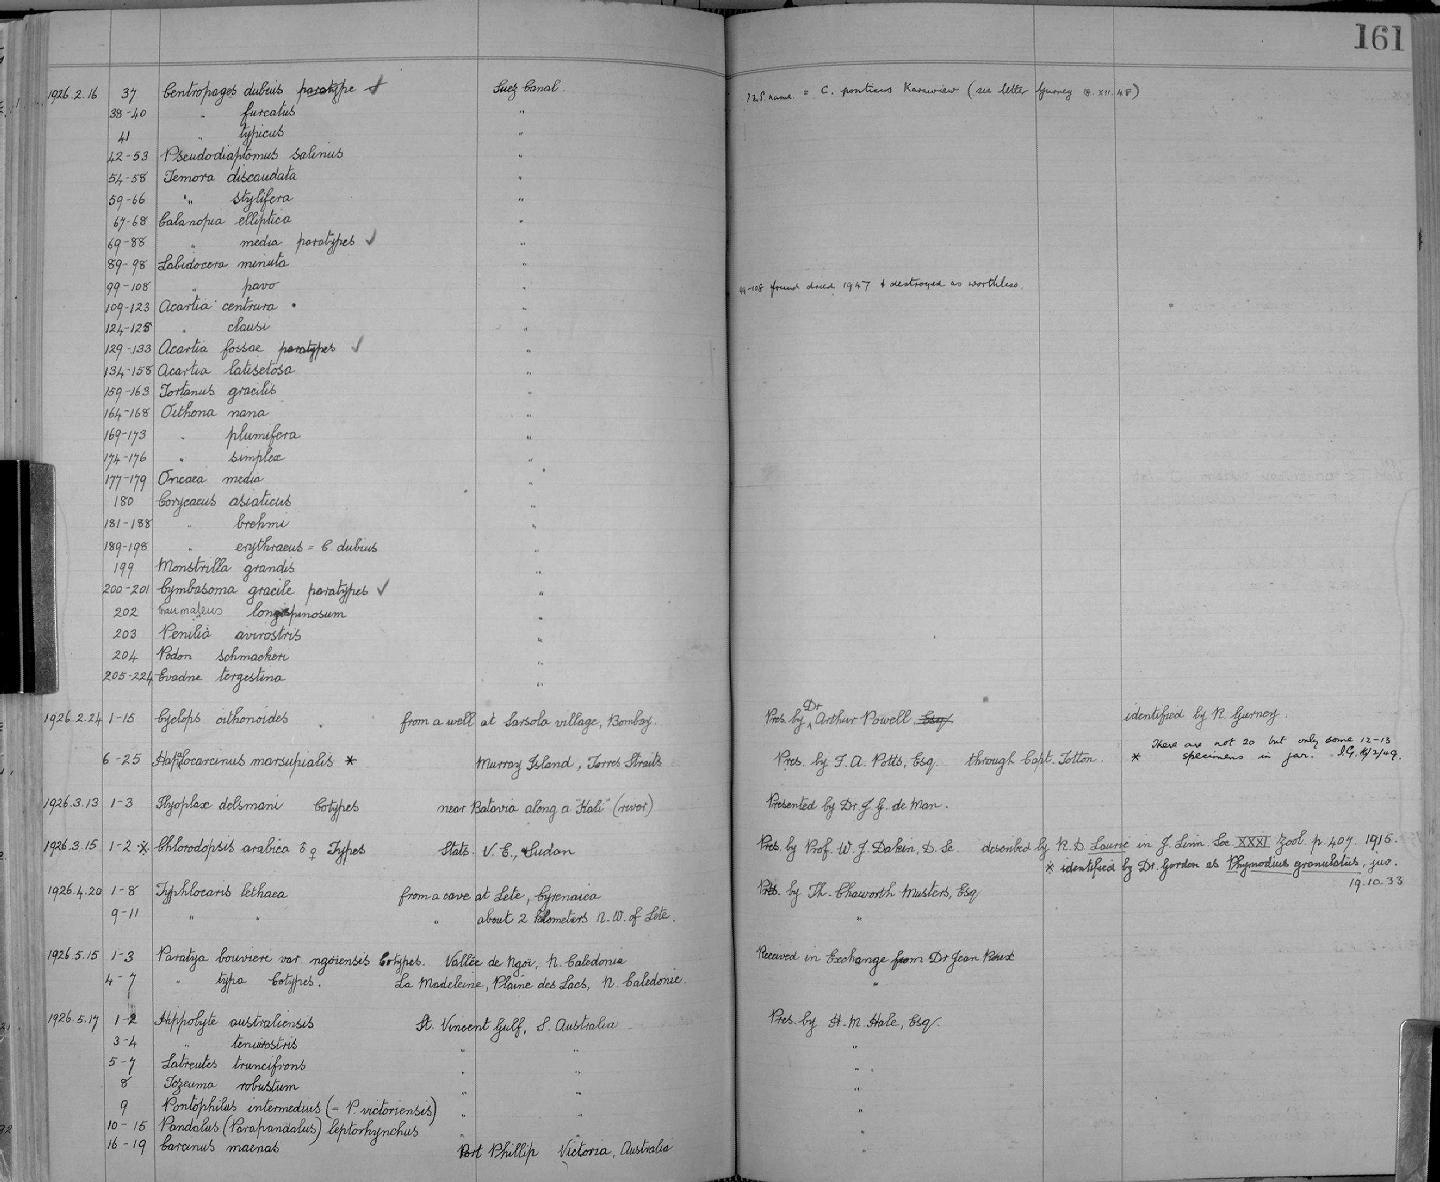 161
1926.2.16 37 Centropages dubius paratype Suez Canal. = C. ponticus Karawiew (see letter Gurney 18.XII.48)
38-40 " furcatus "
41 " typicus "
42-53 Pseudodiaptomus salinus "
54-58 Temora discaudata "
59-66 " stylifera "
67-68 Calanopia elliptica "
69-88 " media paratypes ✓ "
89-98 Labidocera minuta "
99-108 " pavo " 99-108 found dried 1947 & destroyed as worthless.
109-123 Acartia centrura "
124-128 " clausi "
129-133 Acartia fossae paratypes ✓ "
134-158 Acartia latisetosa "
159-163 Tortanus gracilis "
164-168 Oithona nana "
169-173 " plumifera "
174-176 " simplex "
177-179 Oncaea media "
180 Corycaeus asiaticus "
181-188 " brehmi "
189-198 " erythraeus = C. dubius "
199 Monstrilla grandis "
200-201 Cymbasoma gracile paratypes ✓ "
202 longispinosum "
203 Penilia avirostris "
204 Podon schmackeri "
205-224 Evadne tergestina "
1926.2.24 1-15 Cyclops oithonoides from a well at Sarsola village, Bombay. Pres. by Dr Arthur Powell Esq identified by R. Gurney.
6-25 Haplocarcinus marsupialis * Murray Island, Torres Straits Pres. by F. A. Potts, Esq. through Capt. Totton. * There are not 20 but only some 12-13
specimens in jar. I.G. 16/2/49.
1926.3.13 1-3 Ilyoplax delsmani Cotypes near Batavia along a "Kali" (river) Presented by Dr. J. G. de Man.
1926.3.15 1-2 * Chlorodopsis arabica ♂ ♀ Types Stats. V. E., Sudan Pres. by Prof. W. J. Dakin, D. Sc. described by R. D. Laurie in J. Linn. Soc. XXXI Zool. p. 407. 1915.
* identified by Dr. Gordon as Phymodius granulatus, juv.
19.10.33
1926.4.20 1-8 Typhlocaris lethaea from a cave at Lete, Cyrenaica Pres. by Th. Chaworth Musters, Esq
9-11 " " " about 2 kilometers N.W. of Lete. "
1926.5.15 1-3 Paratya bouvieri var ngoiensis Cotypes. Vallée de Ngoi, N. Caledonia Received in Exchange from Dr Jean Roux
4-7 " typa Cotypes. La Madeleine, Plaine des Lacs, N. Caledonie. "
1926.5.17 1-2 Hippolyte australiensis St. Vincent Gulf, S. Australia Pres. by H. M. Hale, Esq.
3-4 " tenuirostris " " "
5-7 Latreutes truncifrons " " "
8 Tozeuma robustum " " "
9 Pontophilus intermedius (= P. victoriensis) " " "
10-15 Pandalus (Parapandalus) leptorhynchus " " "
16-19 Carcinus maenas Port Phillip Victoria, Australia "